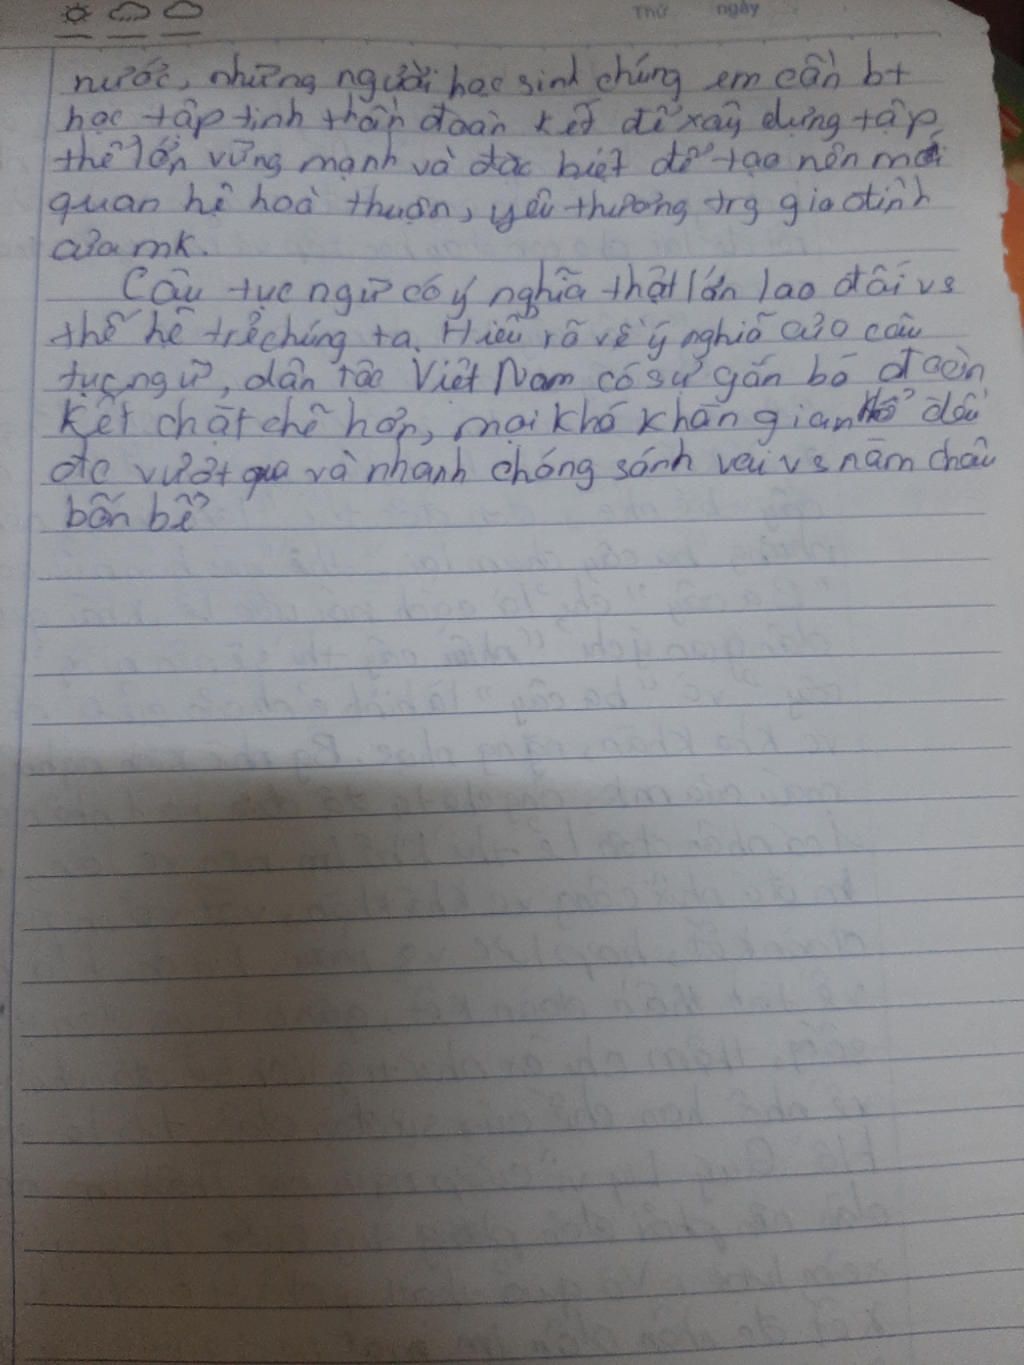 Thứ ngày
nước, những người học sinh chúng em cần bt
học tập tinh thần đoàn kết để xây dựng tập
thể lớn vững mạnh và đặc biệt để tạo nên mối
quan hệ hoà thuận, yêu thương trg gia đình
của mk.
Câu tục ngữ có ý nghĩa thật lớn lao đối vs
thế hệ trẻ chúng ta. Hiểu rõ về ý nghĩa của câu
tục ngữ, dân tộc Việt Nam có sự gắn bó đoàn
kết chặt chẽ hơn, mọi khó khăn gian khổ đều
đc vượt qua và nhanh chóng sánh vai vs năm châu
bốn bể